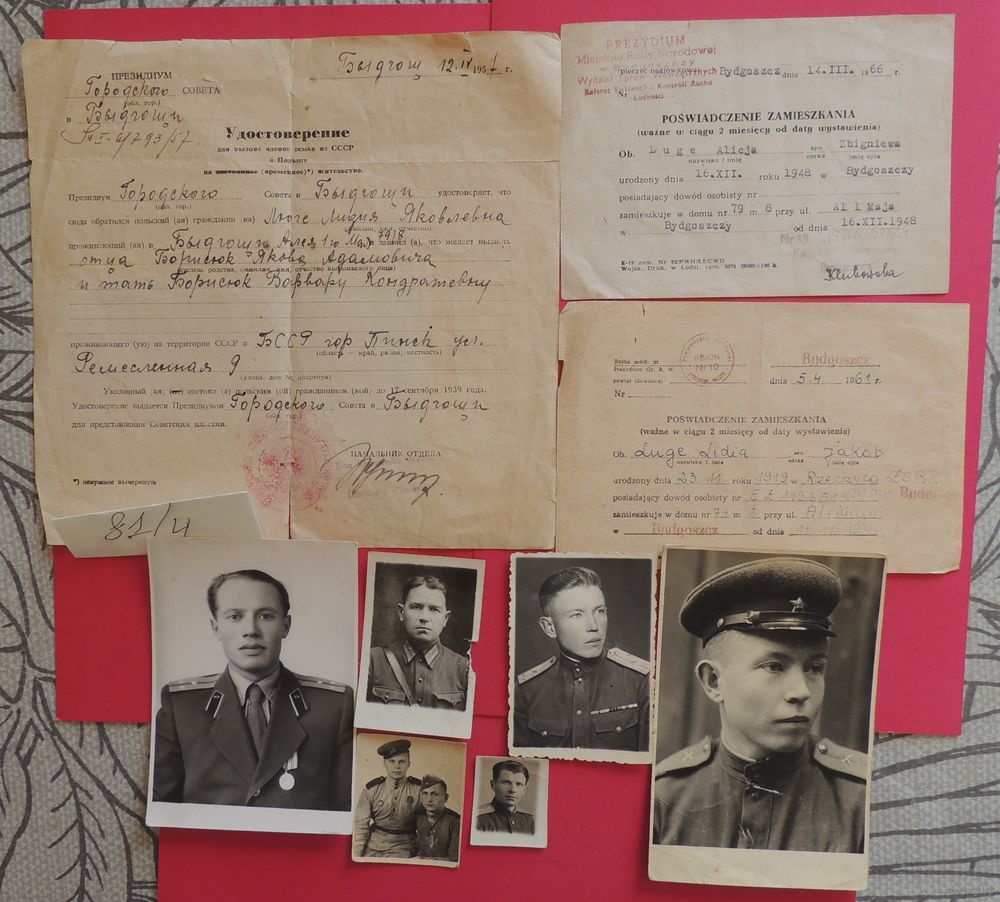 Быдгощ 12.IV 1957 г.
ПРЕЗИДИУМ
Городского СОВЕТА
(обл. гор.)
в Быдгощи
Удостоверение
для вызова членов семьи из СССР
в Польшу
на постоянное (временное*) жительство.
Президиум Городского Совета в Быдгощи удостоверяет, что
(обл. гор.)
сюда обратился польский (ая) гражданин (ка) Люге Лидия Яковлевна
(фамилия, имя, отчество)
проживающий (ая) в Быдгощи Алея 1го Мая 79/8 и заявил (а), что желает вызвать
отца Борисюк Якова Адамовича
(степень родства, фамилия, имя, отчество вызываемого лица)
и мать Борисюк Варвару Кондратевну
проживающего (ую) на территории СССР в БССР гор Пинск ул.
(область — край, район, местность)
Ремесленная 9
(улица, дом №, квартира)
Указанный (ая) состоял (а) польским (ой) гражданином (кой) до 17 сентября 1939 года.
Удостоверение выдается Президиумом Городского Совета в Быдгощи
(обл. гор.)
для представления Советским властям.
НАЧАЛЬНИК ОТДЕЛА
*) ненужное вычеркнуть
81/4
PREZYDIUM
Miejskiej Rady Narodowej
w Bydgoszczy
Wydział Spraw Wewnętrznych
Referat Ewidencji i Kontroli Ruchu
Ludności
pieczęć nagłówkowa Bydgoszcz dnia 14.III. 1966 r.
Nr
POŚWIADCZENIE ZAMIESZKANIA
(ważne w ciągu 2 miesięcy od daty wystawienia)
Ob. Luge Alicja syn córka Zbigniewa
nazwisko i imię imię ojca
urodzony dnia 16.XII. roku 1948 w Bydgoszczy
posiadający dowód osobisty nr
zamieszkuje w domu nr 79 m 8 przy ul. Al 1 Maja
w Bydgoszczy od dnia 16.XII.1948
K-19 zam. Nr 93/PWH/LUCWD
Wojsk. Druk. w Łodzi. zam. 3076 20000×100 k.
REJON
Nr 10
Bydgoszcz
Rejon meld. nr
Prezydium Gr. R. N.
powiat (dzielnica)
dnia 5.4 1961 r.
Nr
POŚWIADCZENIE ZAMIESZKANIA
(ważne w ciągu 2 miesięcy od daty wystawienia)
Ob. Luge Lidia córka Jakób
nazwisko i imię imię ojca
urodzony dnia 23.11. roku 1919 w Rzeczyca ZSRR
posiadający dowód osobisty nr
zamieszkuje w domu nr 79 m 8 przy ul. Al 1 Maja
w Bydgoszcz od dnia